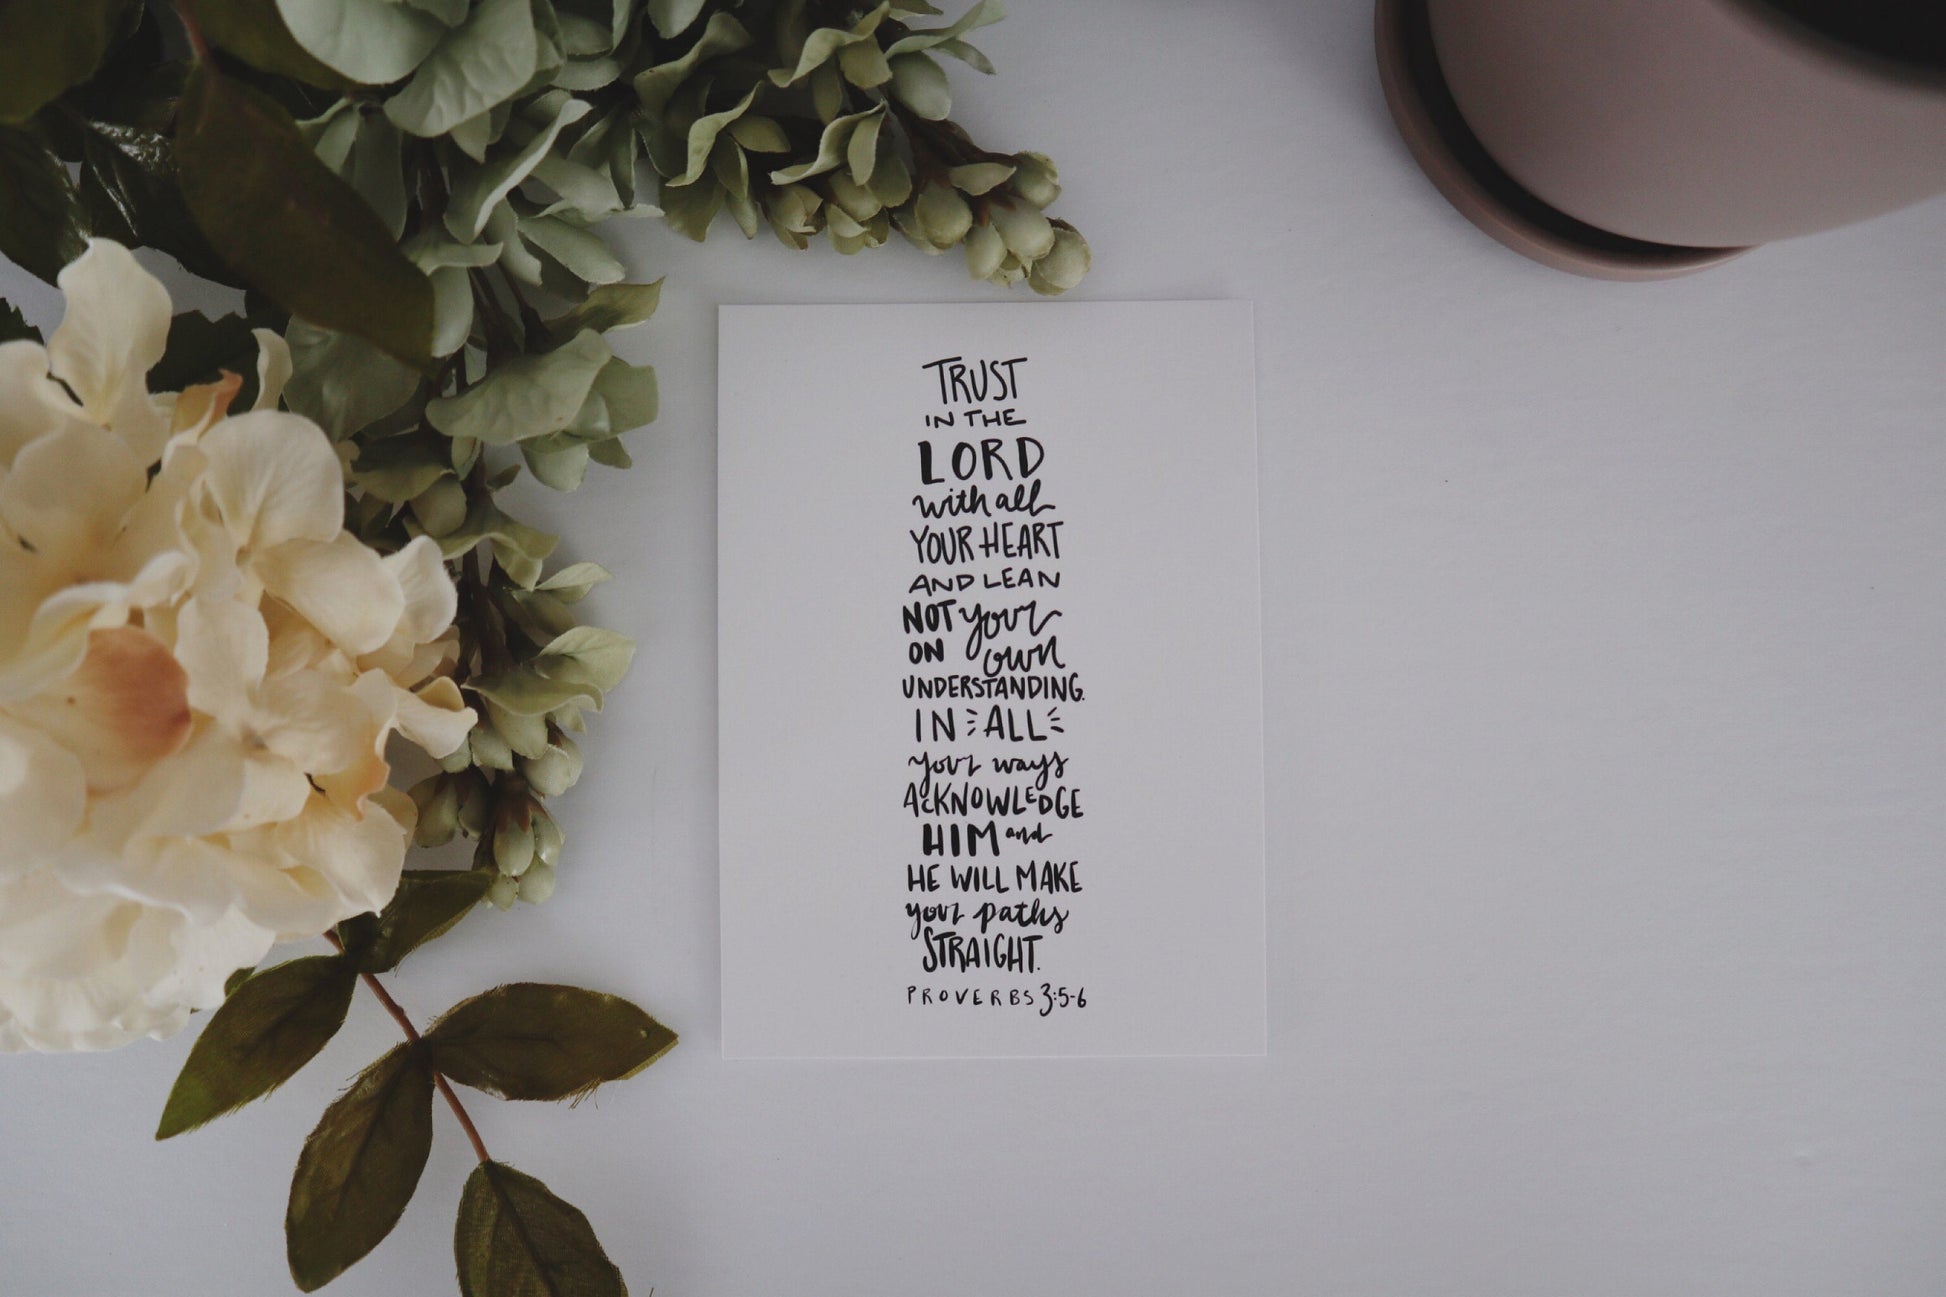 TRUST
IN THE
LORD
with all
YOUR HEART
AND LEAN
NOT your
ON own
UNDERSTANDING.
IN ALL
your ways
ACKNOWLEDGE
HIM and
HE WILL MAKE
your paths
STRAIGHT.
PROVERBS 3:5-6